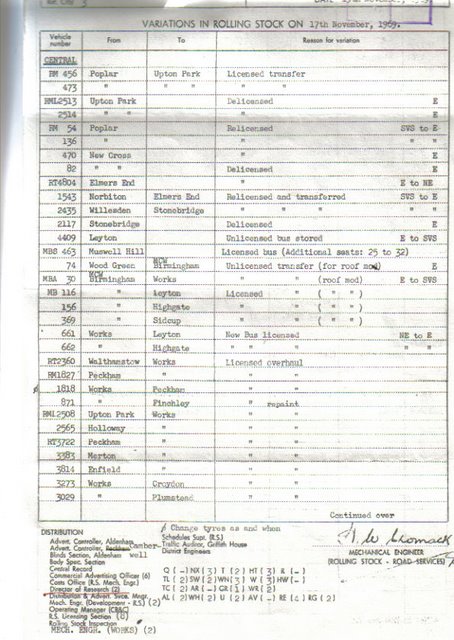 VARIATIONS IN ROLLING STOCK ON 17th November, 1969.
Vehicle number From To Reason for variation
CENTRAL
RM 456 Poplar Upton Park Licensed transfer
473 " " " " "
RML2513 Upton Park Delicensed E
2514 " " " E
RM 54 Poplar Relicensed SVS to E
136 " " " "
470 New Cross " E
82 " " Delicensed E
RT4804 Elmers End " E to NE
1543 Norbiton Elmers End Relicensed and transferred SVS to E
2435 Willesden Stonebridge " " " "
2117 Stonebridge Delicensed E
4409 Leyton Unlicensed bus stored E to SVS
MBS 463 Muswell Hill Licensed bus (Additional seats: 25 to 32)
74 Wood Green MCW Birmingham Unlicensed transfer (for roof mod) E
MBA 30 MCW Birmingham Works " " (roof mod) E to SVS
MB 116 " Leyton Licensed " ( " " )
156 " Highgate " " ( " " )
369 " Sidcup " " ( " " )
661 Works Leyton New Bus licensed NE to E
662 " Highgate " " " " "
RT2360 Walthamstow Works Licensed overhaul
RM1827 Peckham " " "
1818 Works Peckham " "
871 " Finchley " repaint
RML2508 Upton Park Works " "
2565 Holloway " " "
RT3722 Peckham " " "
3383 Merton " " "
3814 Enfield " " "
3273 Works Croydon " "
3029 " Plumstead " "
Continued over
DISTRIBUTION
Change tyres as and when
Advert. Controller, Aldenham
Schedules Supt. (R.S.)
Advert. Controller, Camberwell
Traffic Auditor, Griffith House
Blinds Section, Aldenham
District Engineers
Body Spec. Section
Central Record
Commercial Advertising Officer (6)
Costs Office (R.S. Mech. Engr.)
Director of Research (2)
Distribution & Advert. Svce. Mngr.
Mech. Engr. (Development - R.S.) (2)
Operating Manager (CR&C)
R.S. Licensing Section (8)
Rolling Stock Inspection
MECH. ENGH. (WORKS) (2)
Q (-) NX (3) T (2) HT (3) R (-)
TL (2) SW (2) WN (3) W (3) HW (-)
TC (2) AR (-) GR (1) WR (2)
AL (2) WH (2) U (2) AV (-) RE (4) RG (2)
MECHANICAL ENGINEER
(ROLLING STOCK - ROAD SERVICES)